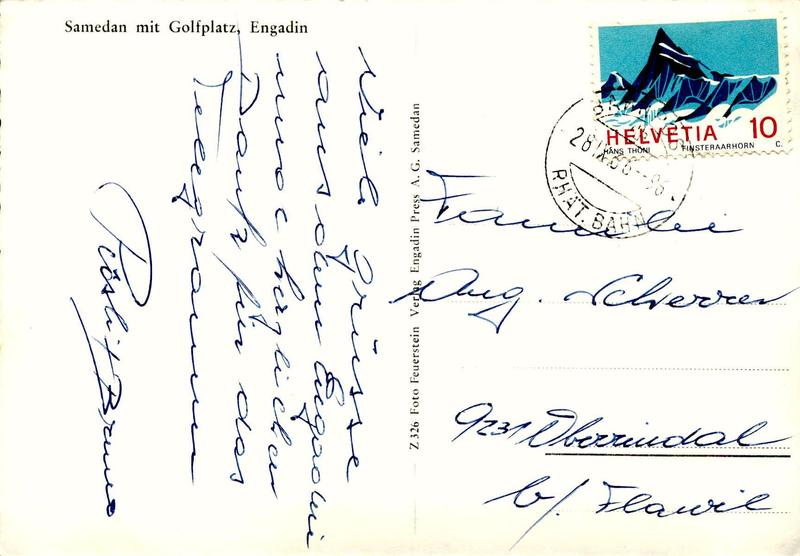 Samedan mit Golfplatz, Engadin
Viele Grüsse
aus dem Engadin
unnd herzlichen
Dank für das
Telegramm
Rösli + Bruno
Z 326 Foto Feuerstein Verlag Engadin Press A. G. Samedan
HELVETIA 10
HANS THÖNI FINSTERAARHORN C.
28.IX.66-
RHÄT. BAHN
Familie
Aug. Scherrer
9231 Oberrindal
b/ Flawil